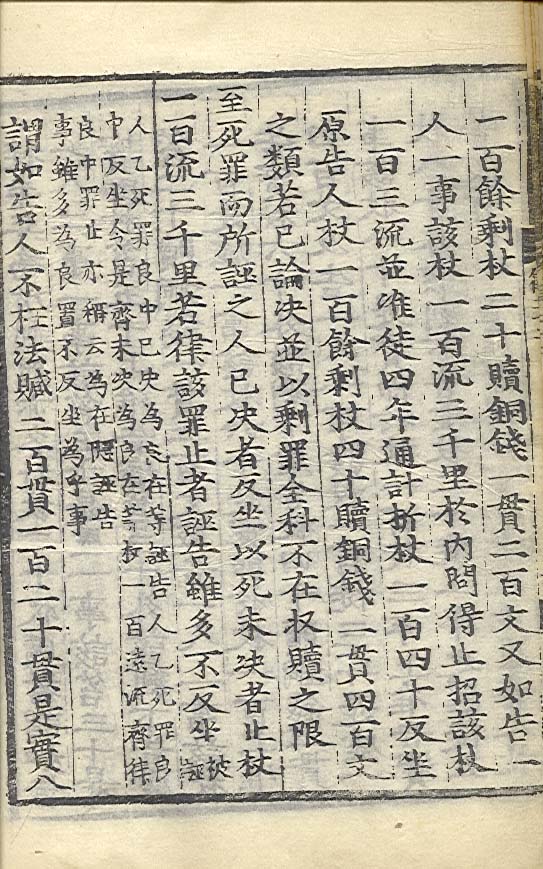 一百餘剩杖二十贖銅錢一貫二百文又如告一
人一事該杖一百流三千里於內問得止招該杖
一百三流並准徒四年通計折杖二百四十反坐
原告人杖一百餘剩杖四十贖銅錢二貫四百文
之類若已論決並以剩罪全科不在收贖之限
至死罪而所誣之人已決者反坐以死未決者止杖
一百流三千里若律該罪止者誣告雖多不反坐被誣
人乙死罪良中已決為在等誣告人乙死罪良
中反坐令是齊未決為良在等杖一百遠流齊律
良中罪止亦稱云為在隱誣告
事雖多為良置不反坐為乎事
謂如告人不枉法贓二百貫一百二十貫是實八